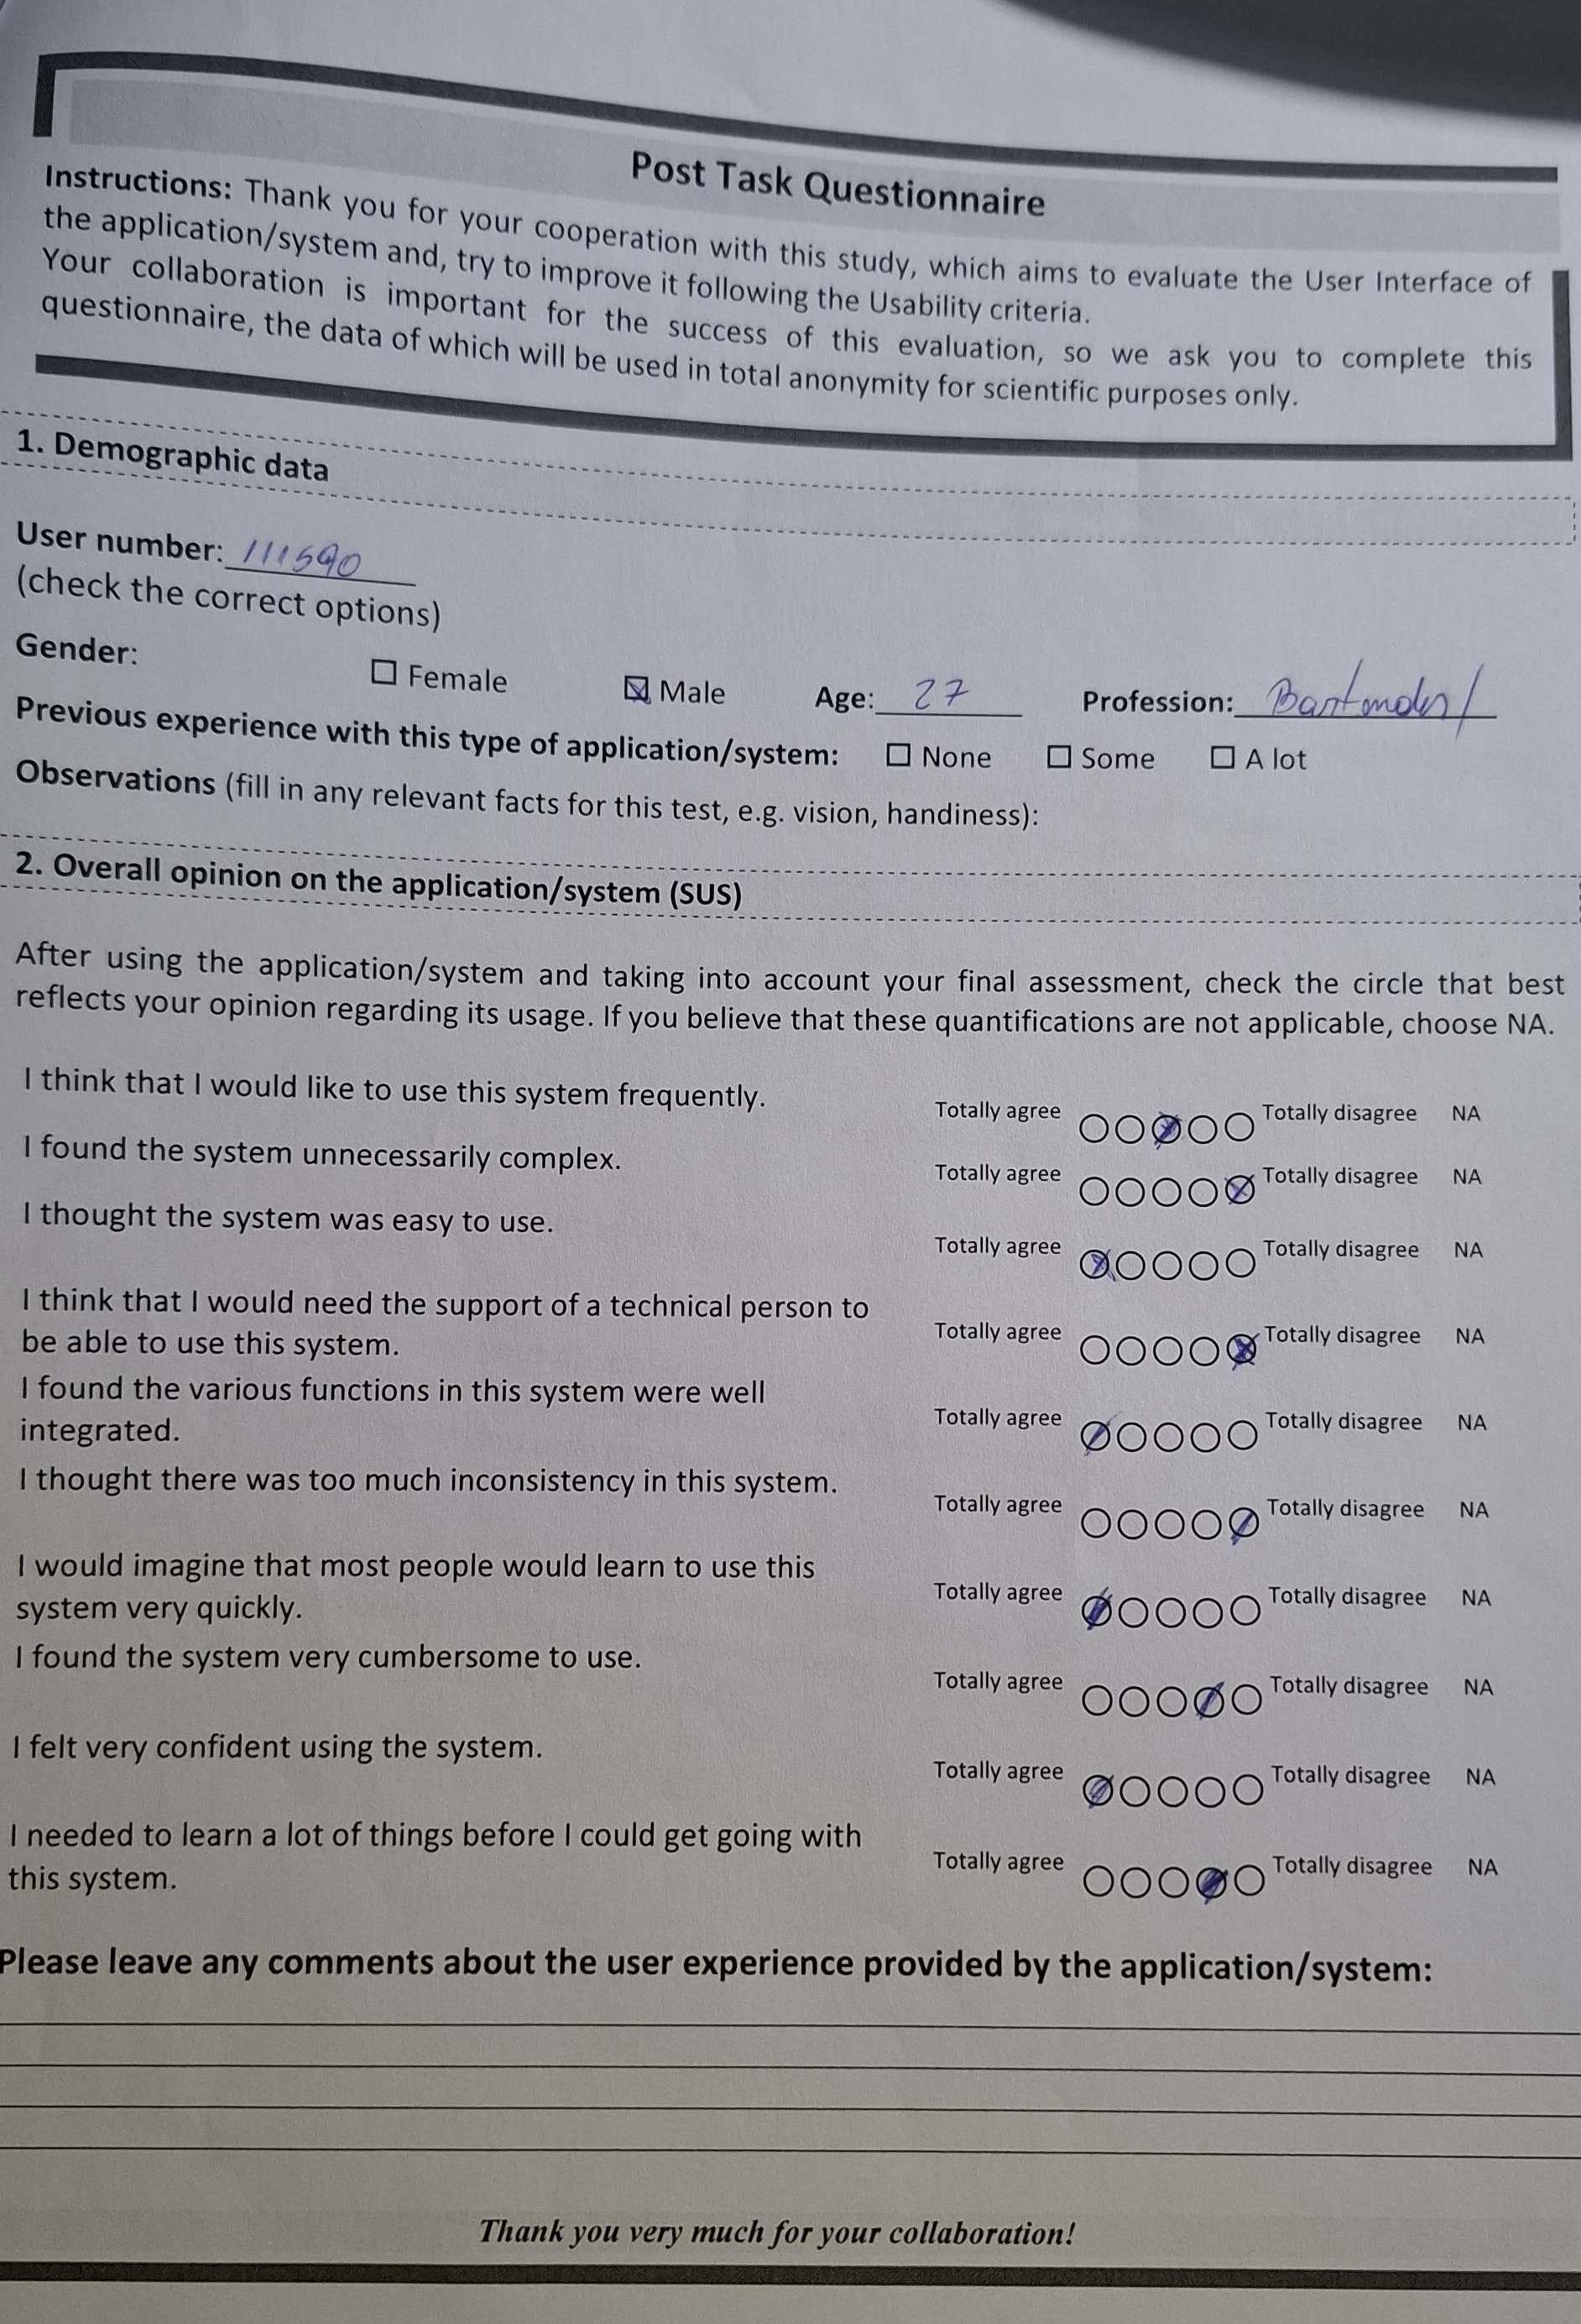 Post Task Questionnaire
Instructions: Thank you for your cooperation with this study, which aims to evaluate the User Interface of
the application/system and, try to improve it following the Usability criteria.
Your collaboration is important for the success of this evaluation, so we ask you to complete this
questionnaire, the data of which will be used in total anonymity for scientific purposes only.
1. Demographic data
User number: 111590
(check the correct options)
Gender: ☐ Female ☒ Male Age: 27 Profession:
Previous experience with this type of application/system: ☐ None ☐ Some ☐ A lot
Observations (fill in any relevant facts for this test, e.g. vision, handiness):
2. Overall opinion on the application/system (SUS)
After using the application/system and taking into account your final assessment, check the circle that best
reflects your opinion regarding its usage. If you believe that these quantifications are not applicable, choose NA.
I think that I would like to use this system frequently. Totally agree Totally disagree NA
I found the system unnecessarily complex. Totally agree Totally disagree NA
I thought the system was easy to use. Totally agree Totally disagree NA
I think that I would need the support of a technical person to
be able to use this system. Totally agree Totally disagree NA
I found the various functions in this system were well
integrated. Totally agree Totally disagree NA
I thought there was too much inconsistency in this system. Totally agree Totally disagree NA
I would imagine that most people would learn to use this
system very quickly. Totally agree Totally disagree NA
I found the system very cumbersome to use. Totally agree Totally disagree NA
I felt very confident using the system. Totally agree Totally disagree NA
I needed to learn a lot of things before I could get going with
this system. Totally agree Totally disagree NA
Please leave any comments about the user experience provided by the application/system:
Thank you very much for your collaboration!